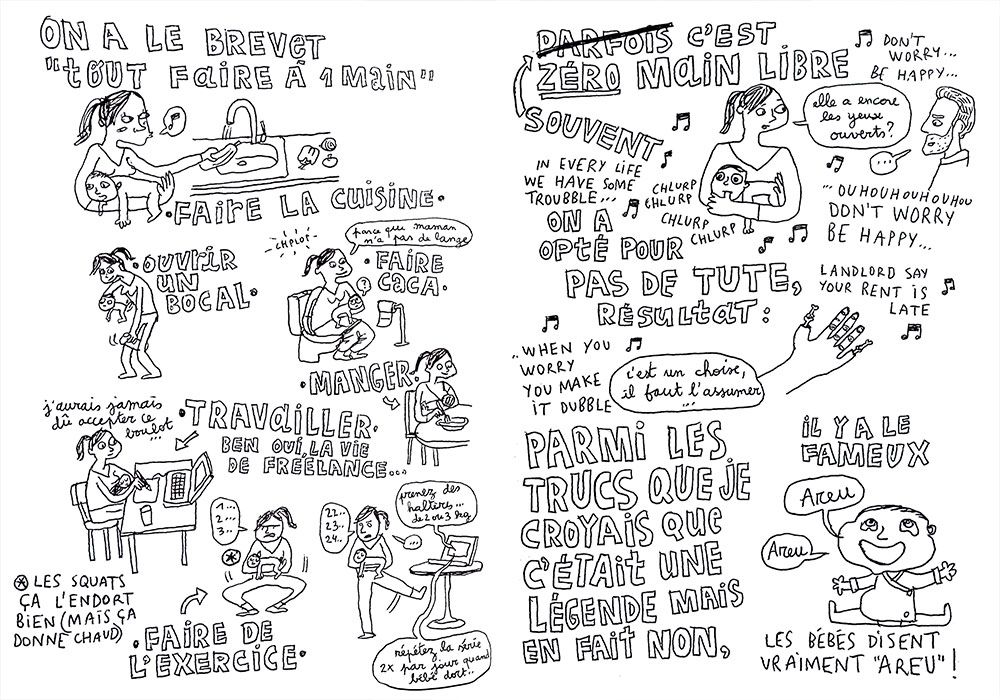 ON A LE BREVET
"tOUT FaiRE À 1 Main"
·FAIRE LA CUISINE·
·OUVRIR
UN
BOCAL·
CHPLOP
parce que maman
n'a pas de lange
·FAIRE
CACA·
?
·MANGER·
j'aurais jamais
dû accepter ce
boulot
...
·TRAVaiLLER·
BEN OUI, LA VIE
DE FREELANCE...
1...
2...
3...
22..
23..
24..
...
prenez des
haltères...
de 2 ou 3 kg
⊛ LES SQUATS
ÇA L'ENDORT
BIEN (MAIS ÇA
DONNE CHAUD)
⊛
·FAIRE DE
L'EXERCICE·
répétez la série
2x par jour quand
bébé dort..
PARFOIS C'EST
ZÉRO Main LIBRE
SOUVENT
DON'T
WORRY...
BE HAPPY...
elle a encore
les yeux
ouverts?
...
IN EVERY LIFE
WE HAVE SOME
TROUBBLE...
CHLURP
CHLURP
CHLURP
CHLURP
... OUHOUHOUHOUHOU
DON'T WORRY
BE HAPPY...
ON A
OPTÉ POUR
PAS DE TUTE,
RÉSULTAT:
LANDLORD SAY
YOUR RENT IS
LATE
..WHEN YOU
WORRY
YOU MAKE
IT DUBBLE
c'est un choise,
il faut l'assumer
...
PARMI LES
TRUCS QUE JE
CROYAIS QUE
C'ÉTAIT UNE
LÉGENDE MAIS
EN FAIT NON,
iL Y A LE
FAMEUX
Areu
Areu
LES BÉBÉS DISENT
VRAIMENT "AREU"!